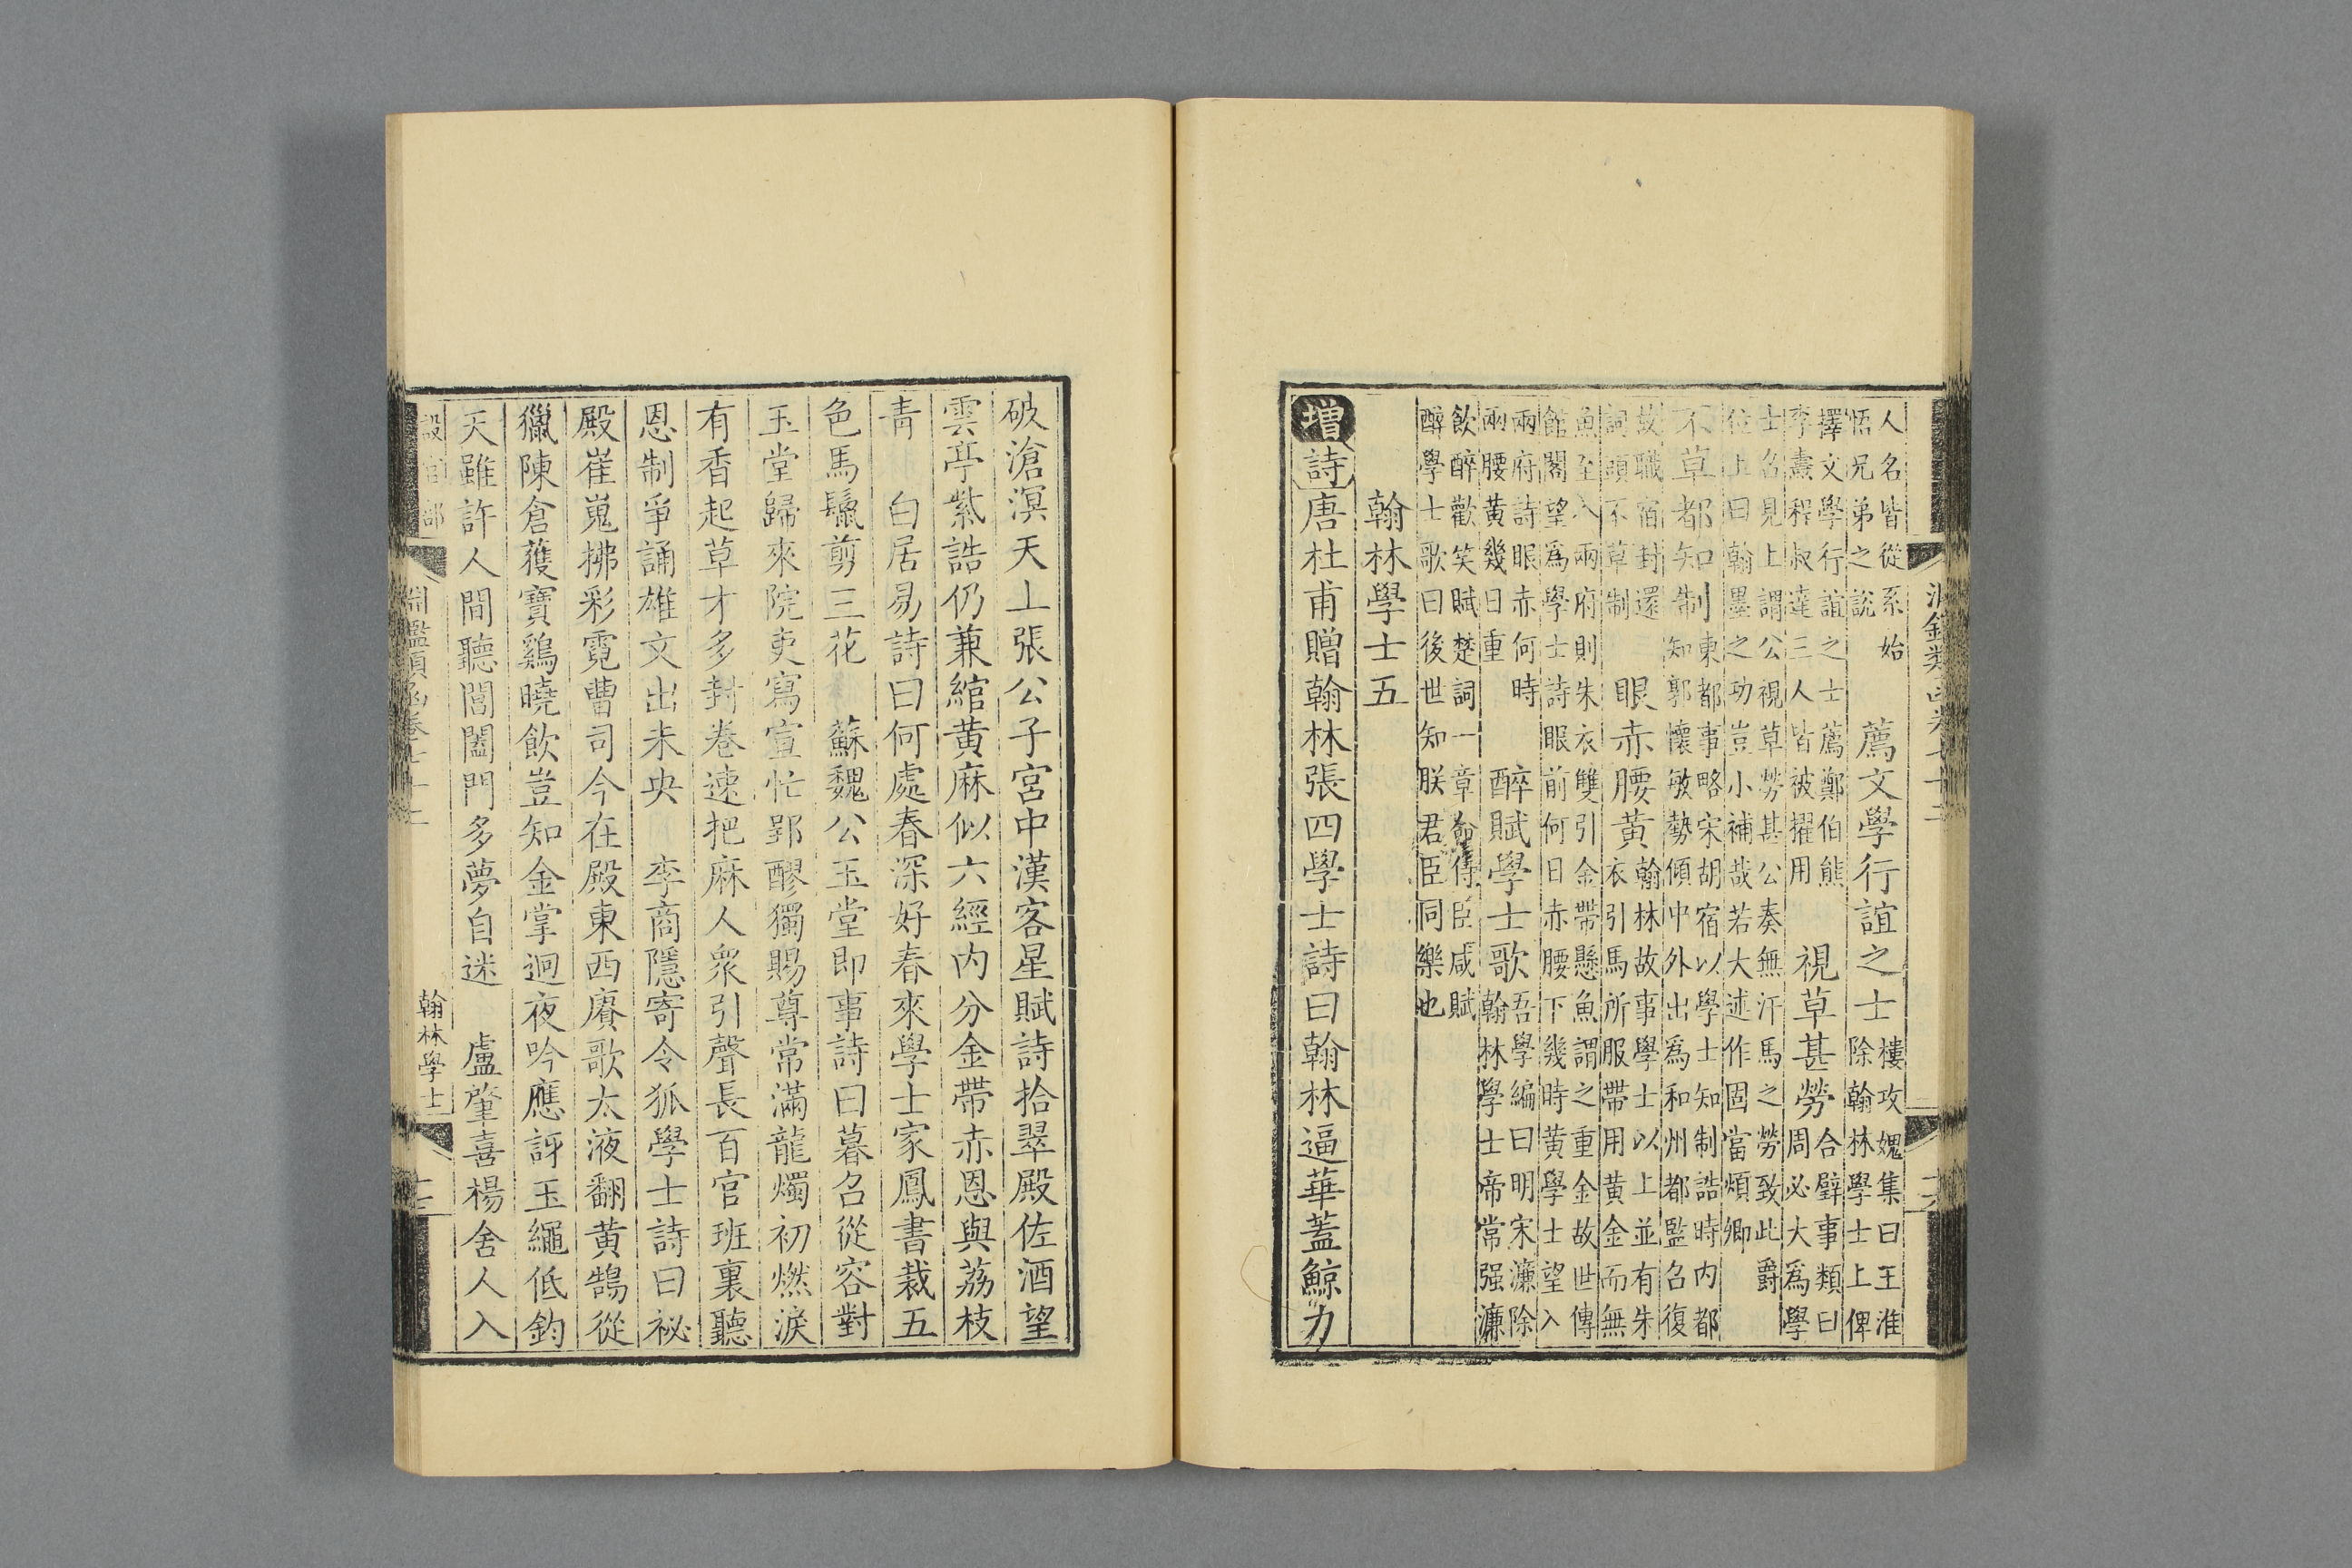 淵鑑類函卷七十二
人名皆從系始
恬兄弟之說
薦文學行誼之士
樓攻媿集曰王淮
除翰林學士上俾
擇文學行誼之士薦鄭伯熊
李燾程叔達三人皆被擢用
視草甚勞
合璧事類曰
周必大爲學
士召見上謂公視草勞甚公奏無汗馬之勞致此爵
位上曰翰墨之功豈小補哉若大述作固當煩卿
不草都知制
東都事略宋胡宿以學士知制誥時内都
知郭懷敏勢傾中外出爲和州都監召復
故職宿封還
詞頭不草制
眼赤腰黄
翰林故事學士以上並有朱
衣引馬所服帶用黄金而無
魚至入兩府則朱衣雙引金帶懸魚謂之重金故世傳
館閣望爲學士詩眼前何日赤腰下幾時黄學士望入
兩府詩眼赤何時
兩腰黄幾日重
醉賦學士歌
吾學編曰明宋濂除
翰林學士帝常强濂
飲醉歡笑賦楚詞一章命侍臣咸賦
醉學士歌曰後世知朕君臣同樂也
翰林學士五
增詩唐杜甫贈翰林張四學士詩曰翰林逼華蓋鯨力
破滄溟天上張公子宮中漢客星賦詩拾翠殿佐酒望
雲亭紫誥仍兼綰黄麻似六經内分金帶赤恩與荔枝
青 白居易詩曰何處春深好春來學士家鳳書裁五
色馬鬣剪三花 蘇魏公玉堂即事詩曰暮召從容對
玉堂歸來院吏寫宣忙郢醪獨賜尊常滿龍燭初燃淚
有香起草才多封卷速把麻人衆引聲長百官班裏聽
恩制爭誦雄文出未央 李商隱寄令狐學士詩曰祕
殿崔嵬拂彩霓曹司今在殿東西賡歌太液翻黄鵠從
獵陳倉獲寶鷄曉飲豈知金掌迥夜吟應訝玉繩低鈞
天雖許人間聽閶闔門多夢自迷 盧肇喜楊舍人入
設官部 淵鑑類函卷七十二 翰林學士